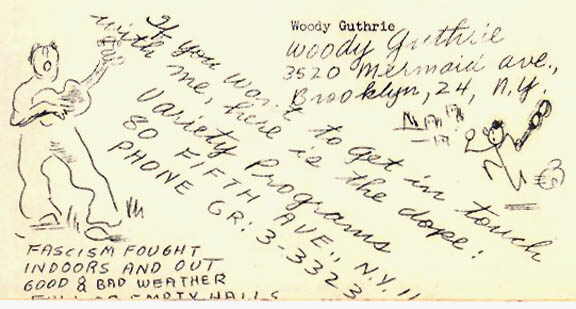 Woody Guthrie
Woody Guthrie
3520 Mermaid ave.,
Brooklyn, 24, N.Y.
If you want to get in touch
with me, here is the dope:
Variety Programs
80 FIFTH AVE" N.Y. 11
PHONE GR: 3-3323
FASCISM FOUGHT
INDOORS AND OUT
GOOD & BAD WEATHER
FULL OR EMPTY HALLS